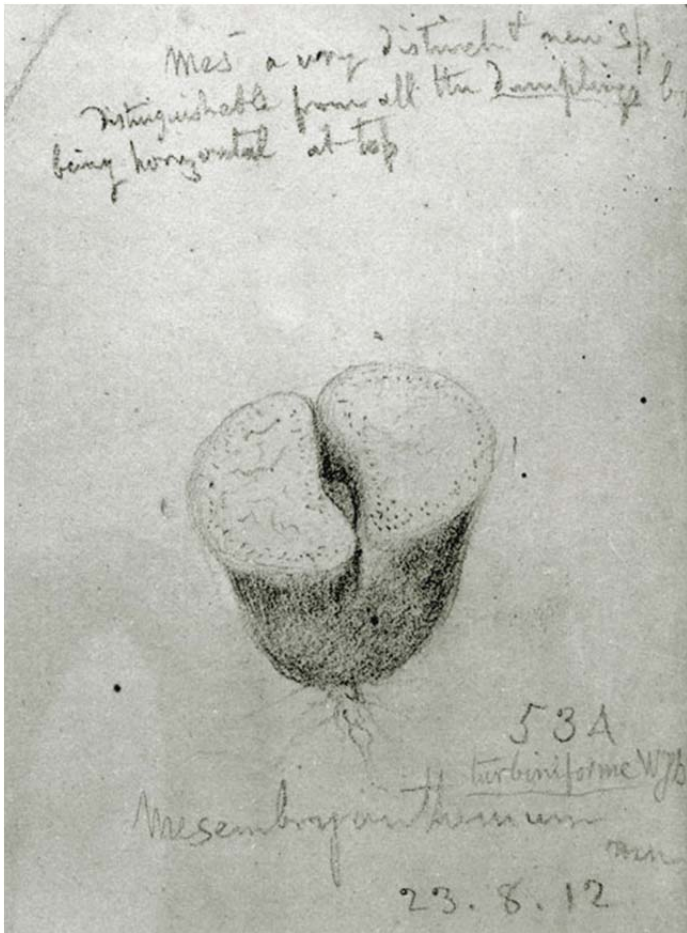 Mes a very distinct & new sp.
distinguishable from all the dumplings by
being horizontal at top
53A
turbiniforme WJB
Mesembryanthemum
23.8.12